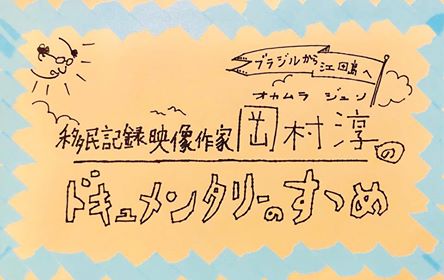 ブラジルから江田島へ
オカムラ ジュン
移民記録映像作家 岡村淳の
ドキュメンタリーのすゝめ